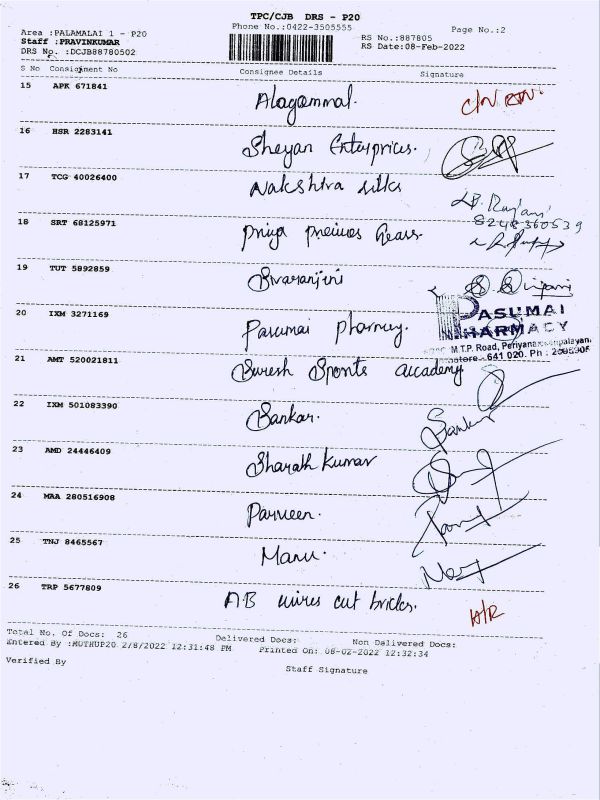 TPC/CJB DRS - P20
Phone No.:0422-3505555
Page No.:2
Area :PALAMALAI 1 - P20
Staff :PRAVINKUMAR
DRS No. :DCJB88780502
RS No.:887805
RS Date:08-Feb-2022
S No Consignment No Consignee Details Signature
15 APK 671841 Alagammal.
16 HSR 2283141 Sheyan Enterprices.
17 TCG 40026400 Nakshtra silks
8248360539
18 SRT 68125971 priya
19 TUT 5892859 Sivaranjini
20 IXM 3271169 Pasumai pharmcy.
PASUMAI
PHARMACY
M.T.P. Road,
641 020. Ph :
21 AMT 520021811 Suresh Sports accademy
22 IXM 501083390 Sankar.
23 AMD 24446409 Sharath Kumar
24 MAA 280516908 Parveen.
25 TNJ 8465567 Manu.
26 TRP 5677809 AB wires cut bricks.
Total No. Of Docs: 26 Delivered Docs: Non Delivered Docs:
Entered By :MUTHUP20 2/8/2022 12:31:48 PM Printed On: 08-02-2022 12:32:34
Verified By
Staff Signature